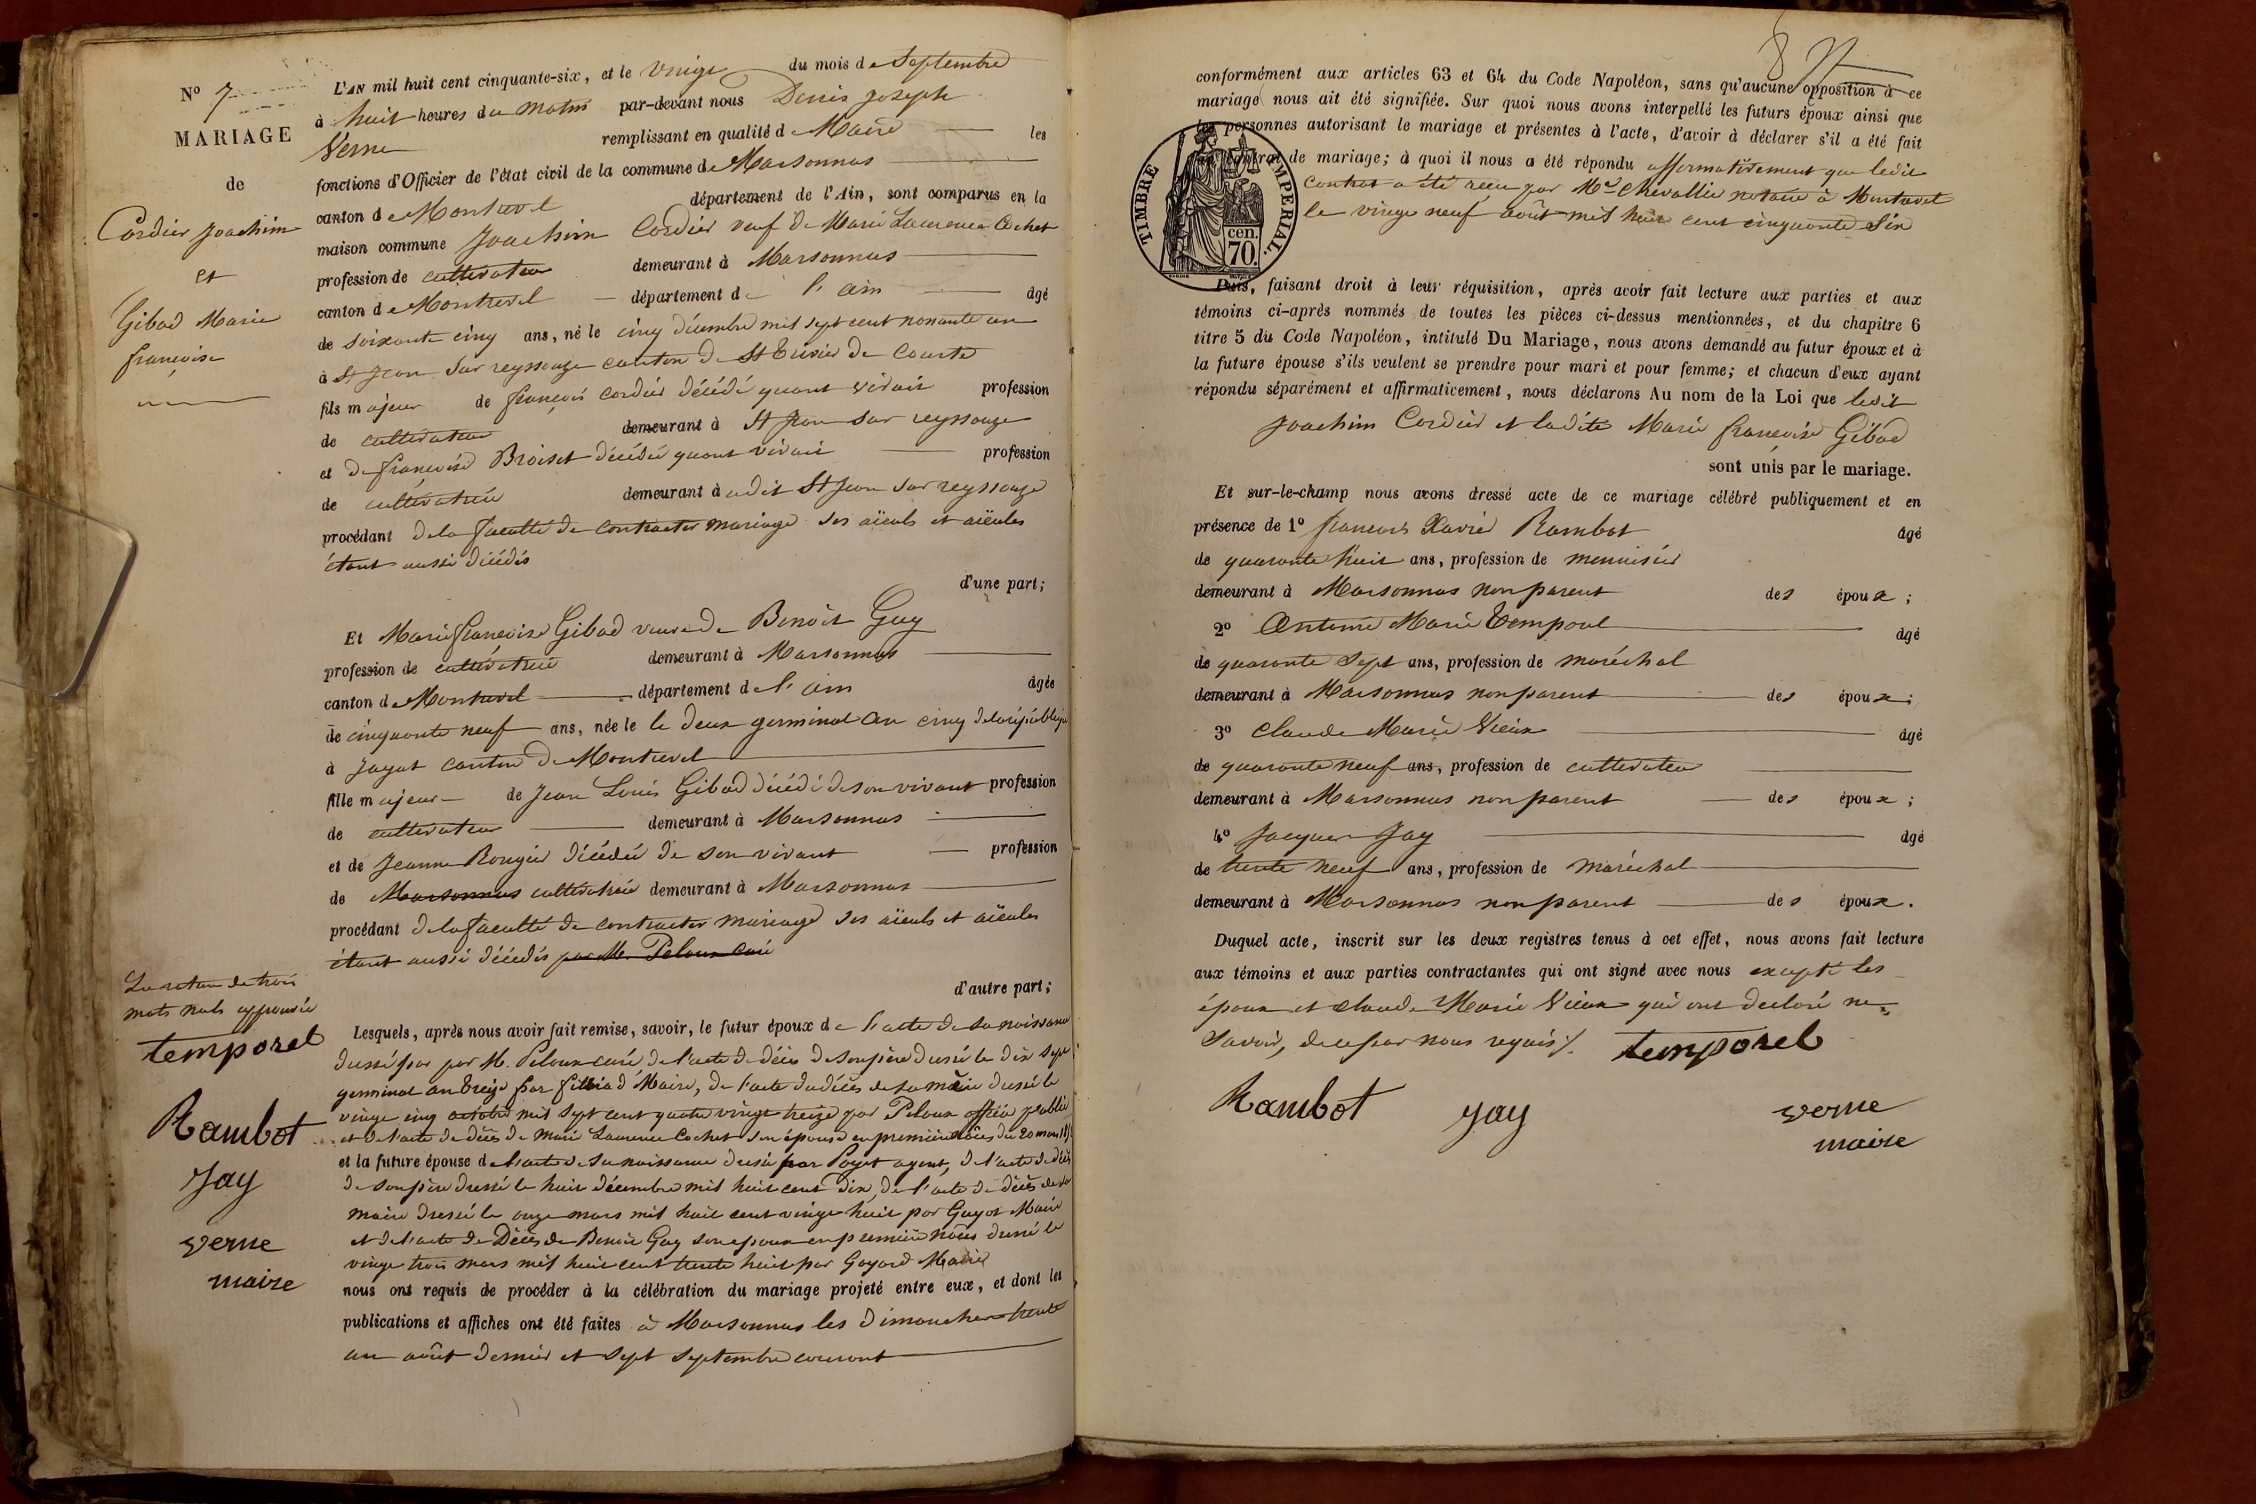 N° 7
MARIAGE
de
Cordier Joachim
et
Gibod Marie
françoise
L'AN mil huit cent cinquante-six, et le vingt du mois de Septembre
à huit heures du matin par-devant nous Denis Joseph
Verne remplissant en qualité de Maire les
fonctions d'Officier de l'état civil de la commune de Marsonnas
canton de Montrevel département de l'Ain, sont comparus en la
maison commune Joachim Cordier veuf de Marie Laurence Cochet
profession de cultivateur demeurant à Marsonnas
canton de Montrevel département de l'ain âgé
de soixante cinq ans, né le cinq décembre mil sept cent nonante un
à St Jean sur reyssouze canton de St Trivier de Courte
fils majeur de françois Cordier décédé quant vivait profession
de cultivateur demeurant à St Jean sur reyssouze
et de françoise Broiset décédée quant vivait profession
de cultivatrice demeurant à audit St Jean sur reyssouze
procédant de la faculté de contracter mariage ses aïeuls et aïeules
étant aussi décédés
d'une part;
Et Marie françoise Gibod veuve de Benoit Guy
profession de cultivatrice demeurant à Marsonnas
canton de Montrevel département de l'ain âgée
de cinquante neuf ans, née le le deux germinal an cinq de la république
à Jayat canton de Montrevel
fille majeure de Jean Louis Gibod décédé de son vivant profession
de cultivateur demeurant à Marsonnas
et de Jeanne Rougier décédée de son vivant profession
de Marsonnas cultivatrice demeurant à Marsonnas
procédant de la faculté de contracter mariage ses aïeuls et aïeules
étant aussi décédés par Mr Peloux curé
d'autre part;
La rature de trois
mots nuls approuvée
temporel
Rambot
Jay
verne
maire
Lesquels, après nous avoir fait remise, savoir, le futur époux de l'acte de sa naissance
dressé par par M. Peloux curé, de l'acte de décès de son père dressé le dix sept
germinal an treize par maire, de l'acte du décès de sa mère dressé le
vingt cinq octobre mil sept cent quatre vingt treize par Peloux officier public
et de l'acte de décès de Marie Laurence Cochet son épouse en premières noces du 20 mars
et la future épouse de l'acte de sa naissance dressé par Poget agent, de l'acte de décès
de son père dressé le huit décembre mil huit cent dix, de l'acte de décès de sa
mère dressé le onze mars mil huit cent vingt huit par Guyot Maire
et de l'acte de Décès de Benoit Guy son époux en premières noces dressé le
vingt trois mars mil huit cent trente huit par Goyard Maire
nous ont requis de procéder à la célébration du mariage projeté entre eux, et dont les
publications et affiches ont été faites à Marsonnas les dimanches trente
un août dernier et sept septembre courant
conformément aux articles 63 et 64 du Code Napoléon, sans qu'aucune opposition à ce
mariage nous ait été signifiée. Sur quoi nous avons interpellé les futurs époux ainsi que
les personnes autorisant le mariage et présentes à l'acte, d'avoir à déclarer s'il a été fait
un contrat de mariage; à quoi il nous a été répondu affirmativement que ledit
Contrat a été reçu par Me Chevallier notaire à Montrevel
le vingt neuf août mil huit cent cinquante six
TIMBRE IMPERIAL.
cen.
70.
Puis, faisant droit à leur réquisition, après avoir fait lecture aux parties et aux
témoins ci-après nommés de toutes les pièces ci-dessus mentionnées, et du chapitre 6
titre 5 du Code Napoléon, intitulé Du Mariage, nous avons demandé au futur époux et à
la future épouse s'ils veulent se prendre pour mari et pour femme; et chacun d'eux ayant
répondu séparément et affirmativement, nous déclarons Au nom de la Loi que ledit
Joachim Cordier et ladite Marie françoise Gibod
sont unis par le mariage.
Et sur-le-champ nous avons dressé acte de ce mariage célébré publiquement et en
présence de 1° francois Xavier Rambot âgé
de quarante huit ans, profession de menuisier
demeurant à Marsonnas non parent des époux;
2° Antoine Marie Temporel âgé
de quarante sept ans, profession de maréchal
demeurant à Marsonnas non parent des époux;
3° Claude Marie Vieux âgé
de quarante neuf ans, profession de cultivateur
demeurant à Marsonnas non parent des époux;
4° Jacques Jay âgé
de trente neuf ans, profession de maréchal
demeurant à Marsonnas non parent des époux.
Duquel acte, inscrit sur les deux registres tenus à cet effet, nous avons fait lecture
aux témoins et aux parties contractantes qui ont signé avec nous excepté les
époux et Claude Marie Vieux qui ont déclaré ne
Savoir, de ce par nous requis
temporel
Rambot Jay verne
maire